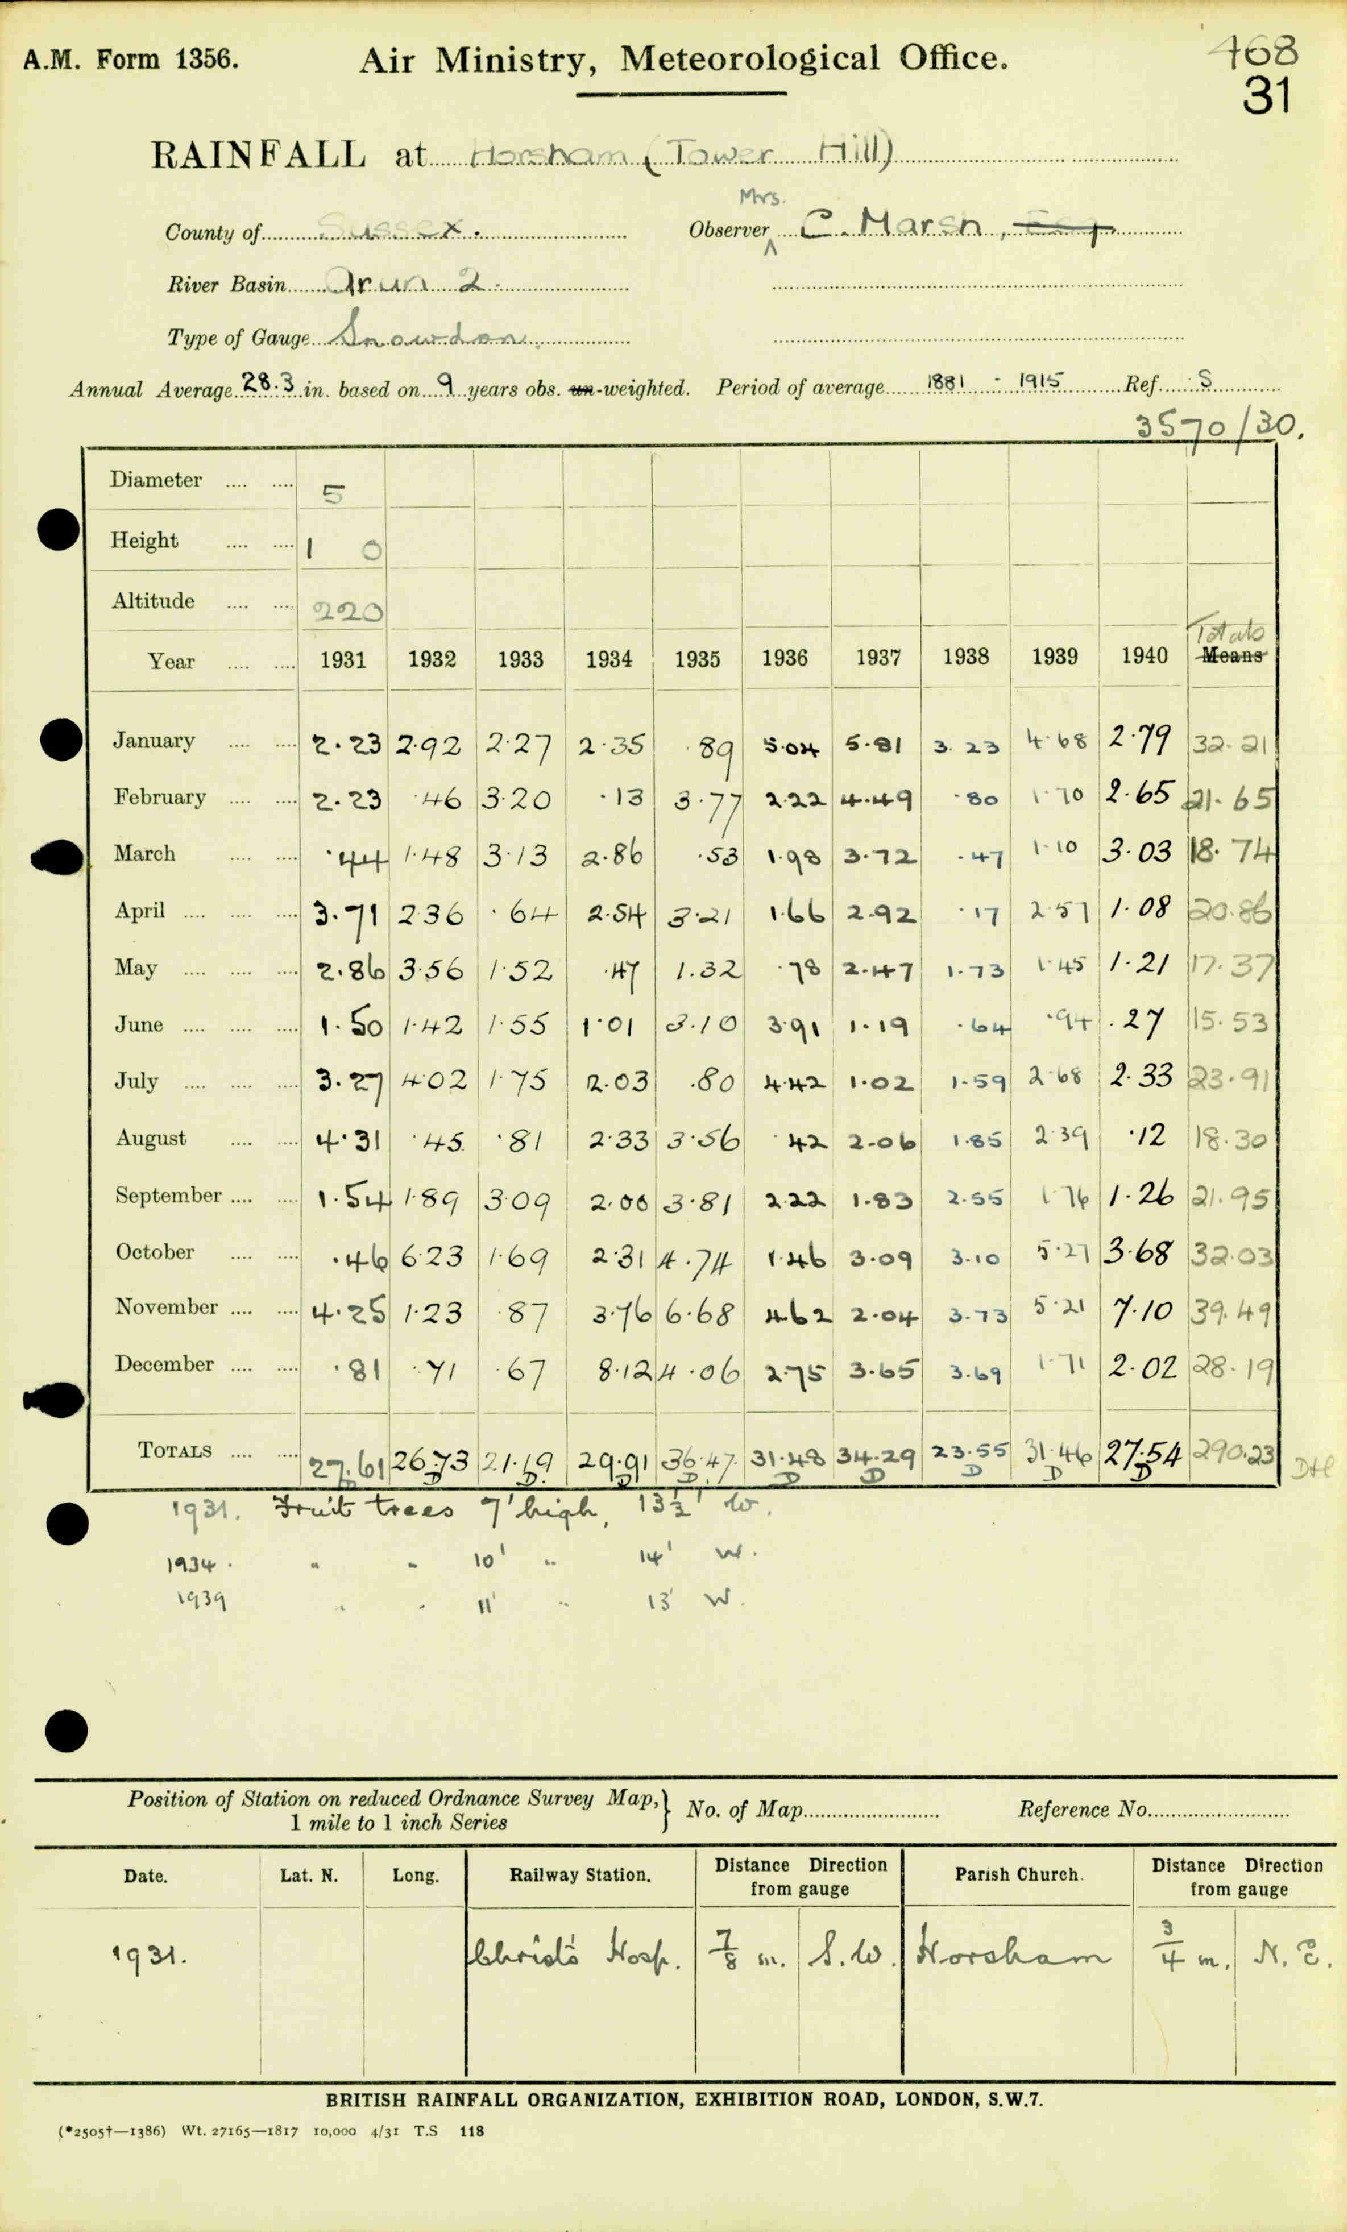 A.M. Form 1356. Air Ministry, Meteorological Office. 468
31
RAINFALL at Horsham (Tower Hill)
Mrs.
County of Sussex. Observer C. Marsh, Esq.
River Basin Arun 2.
Type of Gauge Snowdon.
Annual Average 28.3 in. based on 9 years obs. un-weighted. Period of average 1881 - 1915 Ref. S
3570/30.
Diameter 5
Height 1 0
Altitude 220
Totals
Year 1931 1932 1933 1934 1935 1936 1937 1938 1939 1940 Means
January 2.23 2.92 2.27 2.35 .89 5.04 5.81 3.23 4.68 2.79 32.21
February 2.23 .46 3.20 .13 3.77 2.22 4.49 .80 1.70 2.65 21.65
March .44 1.48 3.13 2.86 .53 1.98 3.72 .47 1.10 3.03 18.74
April 3.71 2.36 .64 2.54 3.21 1.66 2.92 .17 2.57 1.08 20.86
May 2.86 3.56 1.52 .47 1.32 .78 2.47 1.73 1.45 1.21 17.37
June 1.50 1.42 1.55 1.01 3.10 3.91 1.19 .64 .94 .27 15.53
July 3.27 4.02 1.75 2.03 .80 4.42 1.02 1.59 2.68 2.33 23.91
August 4.31 .45 .81 2.33 3.56 .42 2.06 1.85 2.39 .12 18.30
September 1.54 1.89 3.09 2.00 3.81 2.22 1.83 2.55 1.76 1.26 21.95
October .46 6.23 1.69 2.31 4.74 1.46 3.09 3.10 5.27 3.68 32.03
November 4.25 1.23 .87 3.76 6.68 4.62 2.04 3.73 5.21 7.10 39.49
December .81 .71 .67 8.12 4.06 2.75 3.65 3.69 1.71 2.02 28.19
TOTALS 27.61 26.73 21.19 29.91 36.47 31.48 34.29 23.55 31.46 27.54 290.23
D D D D D D D D D D
1931. Fruit trees 7' high, 13½' W.
1934. " " 10' " 14' W.
1939 " " 11' " 13' W.
Position of Station on reduced Ordnance Survey Map,} No. of Map Reference No.
1 mile to 1 inch Series
Date. Lat. N. Long. Railway Station. Distance Direction from gauge Parish Church. Distance Direction from gauge
1931. Christ's Hosp. 7/8 m. S.W. Horsham 3/4 m. N.E.
BRITISH RAINFALL ORGANIZATION, EXHIBITION ROAD, LONDON, S.W.7.
(*2505†—1386) Wt. 27165—1817 10,000 4/31 T.S 118